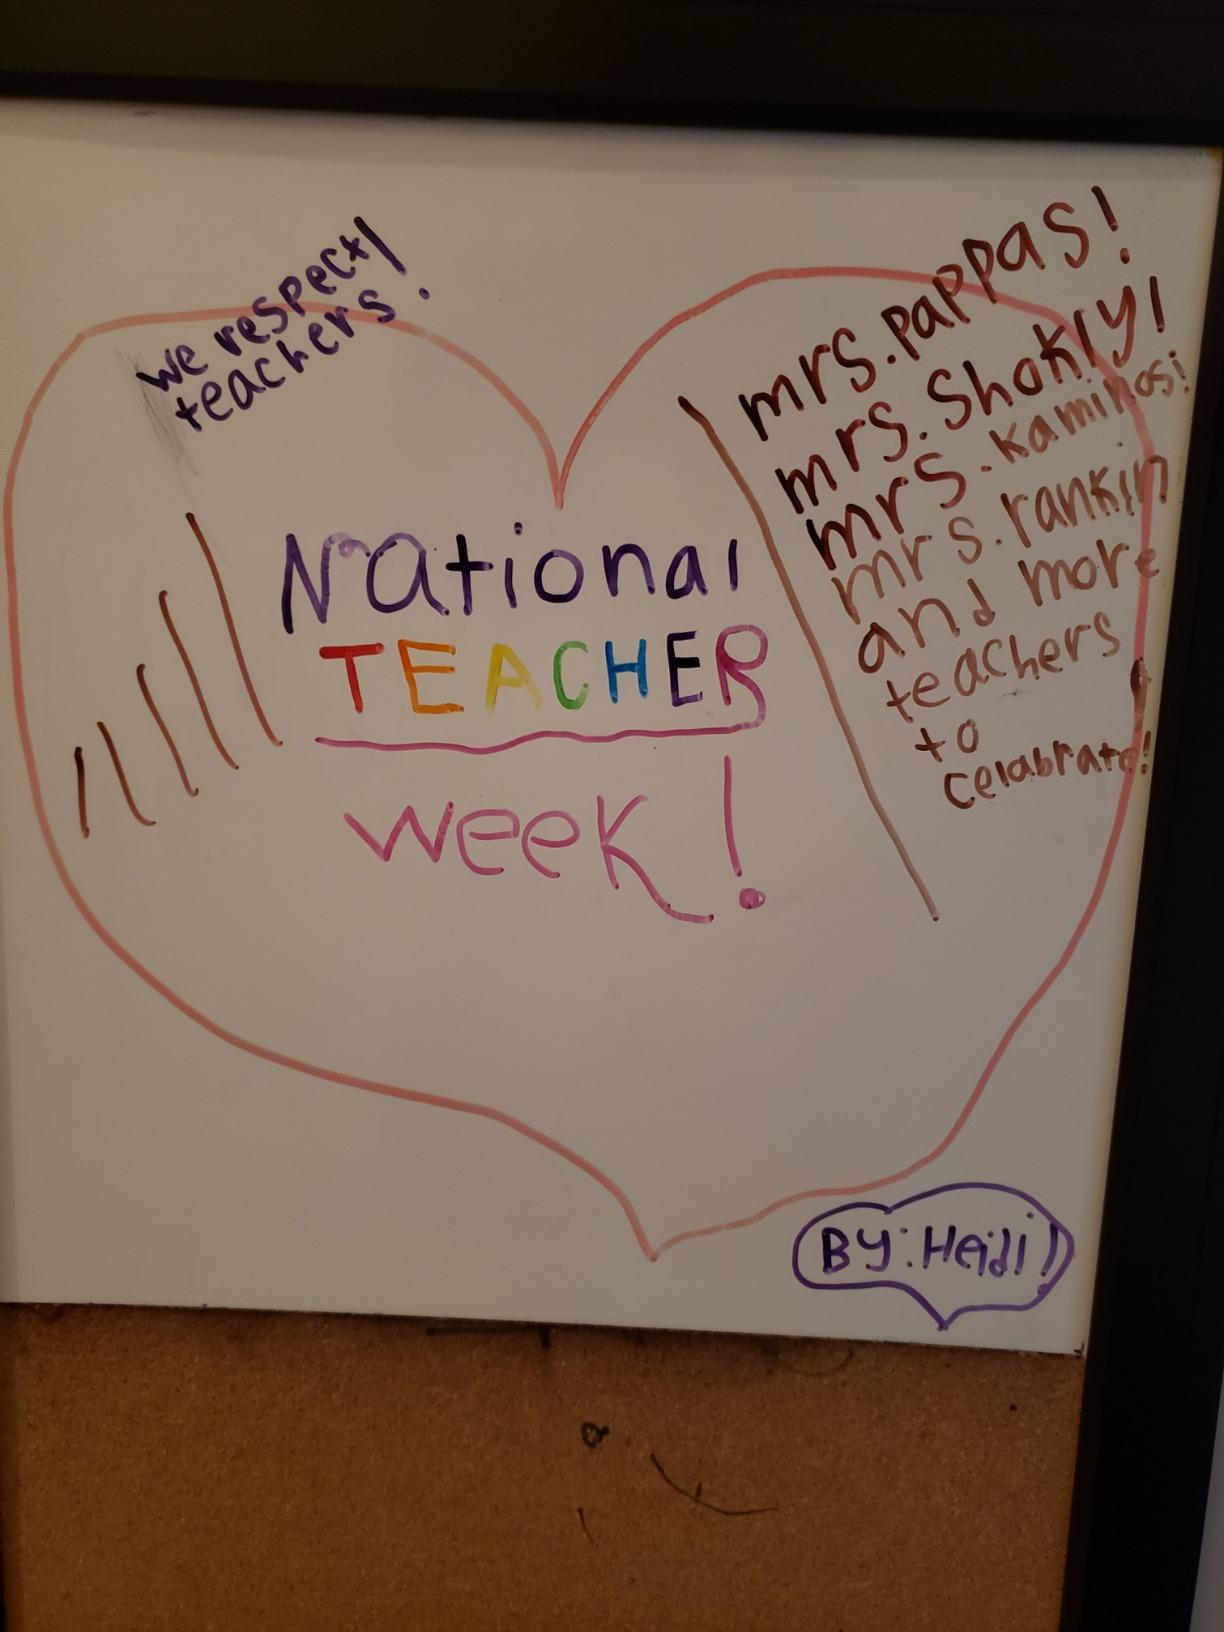 we respect
teachers!
National
TEACHER
week!
mrs. pappas!
mrs. Shokly!
mrs. kaminosi!
mrs. rankin
and more
teachers
to
celabrate!
BY: Heidi!